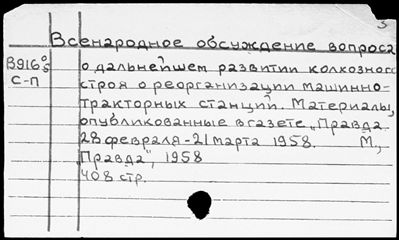 3
Всенародное обсуждение вопроса
В916 о/5 о дальнейшем развитии колхозного
С-П строя о реорганизации машинно-
тракторных станций. Материалы,
опубликованные в газете „Правда
28 февраля-21 марта 1958. М.,
„Правда", 1958
408 стр.